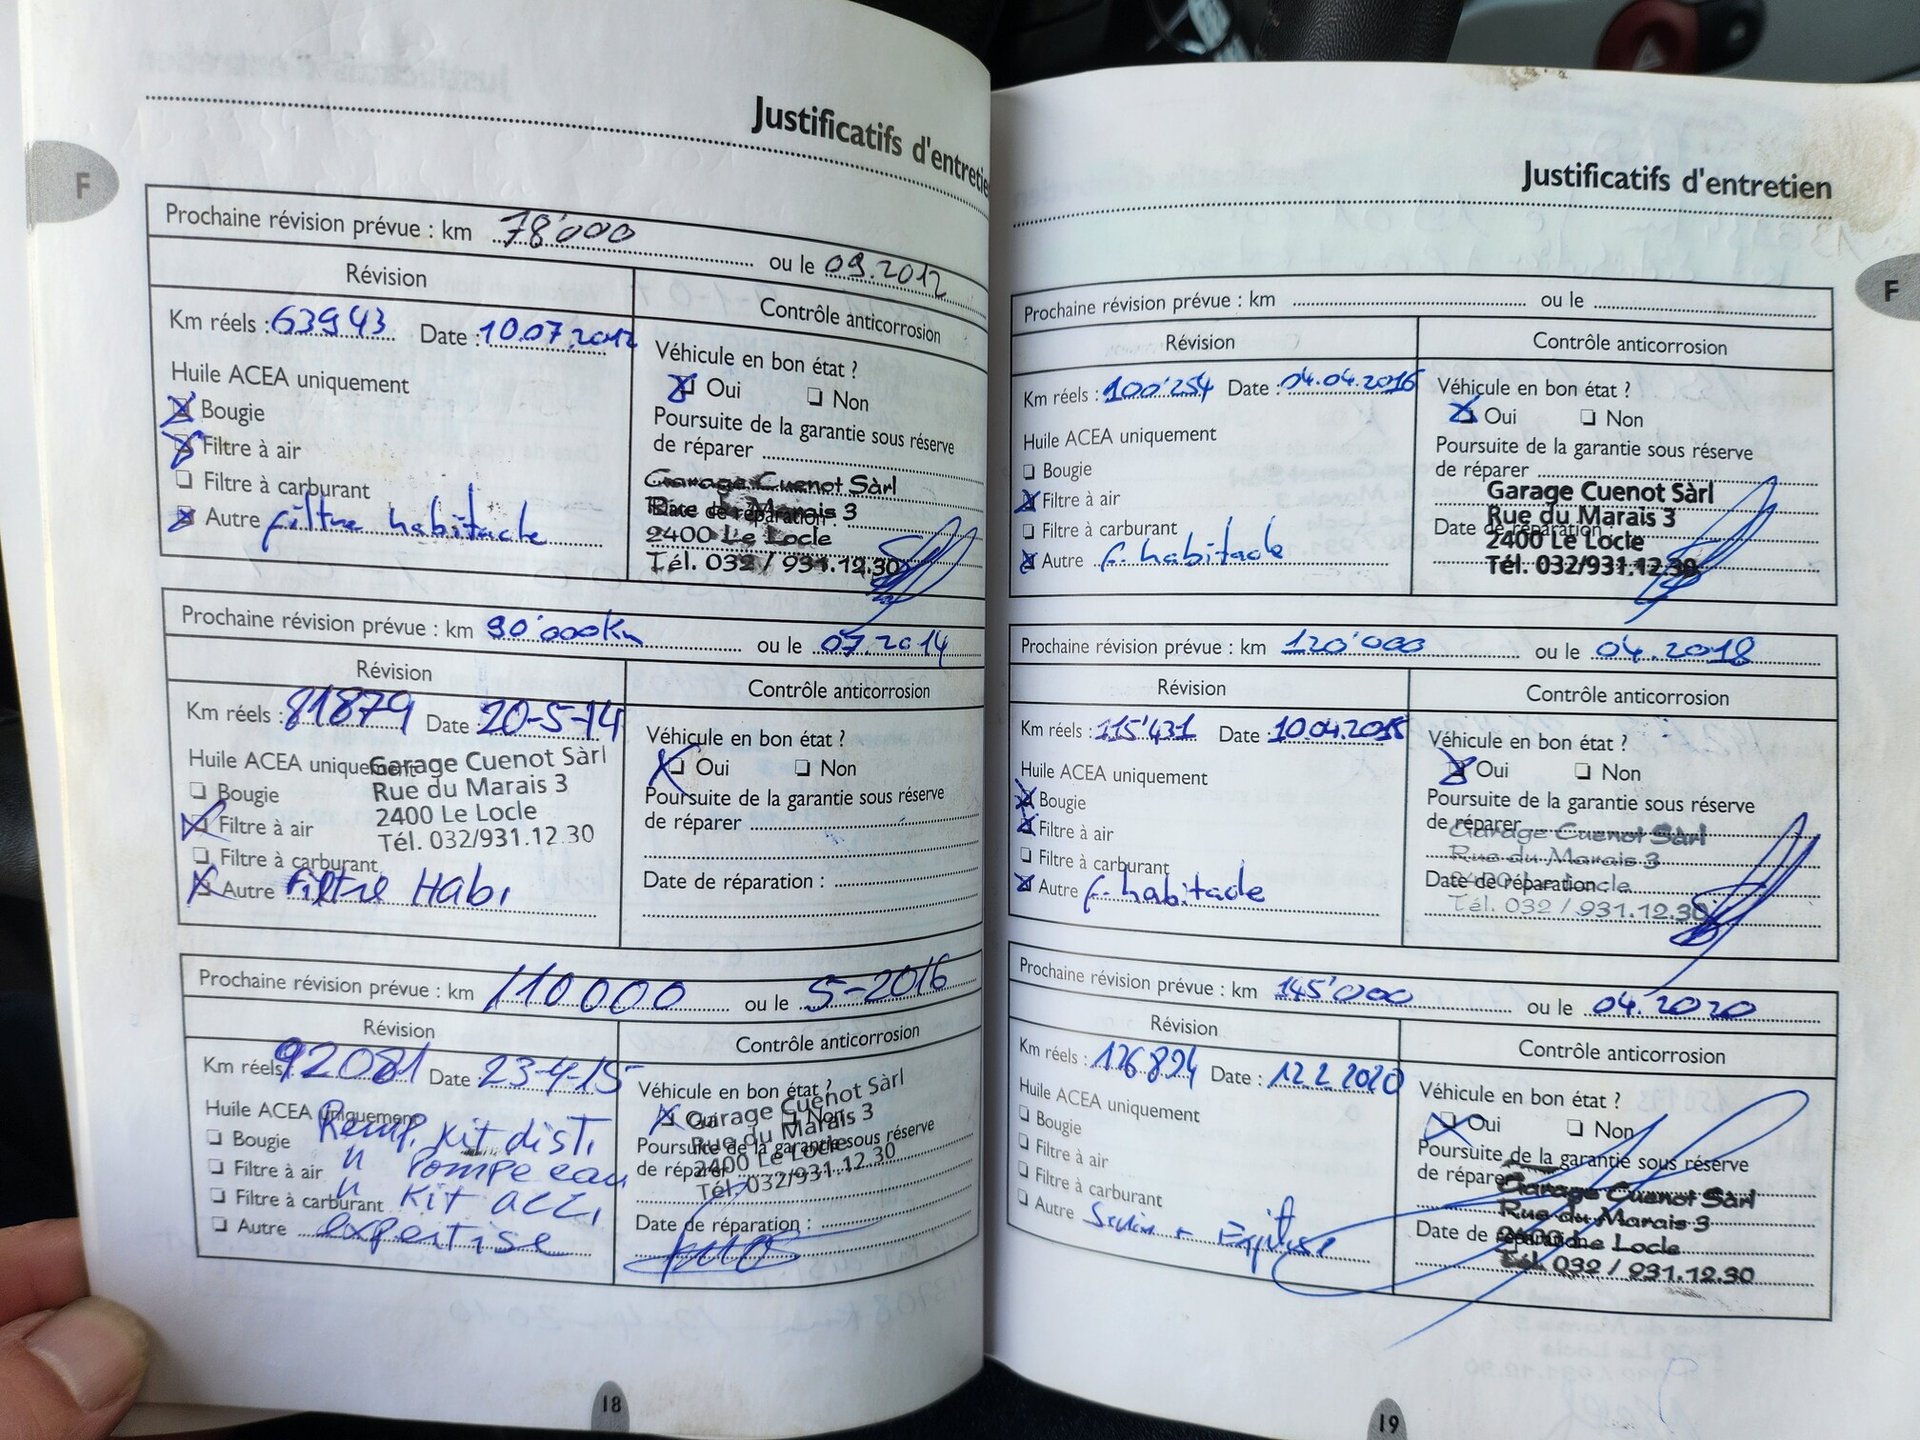 Justificatifs d'entretie
F
Prochaine révision prévue : km 78'000 ou le 09.2012
Révision
Contrôle anticorrosion
Km réels : 63943 Date : 10.07.2012
Huile ACEA uniquement
Bougie
Filtre à air
Filtre à carburant
Autre filtre habitacle
Véhicule en bon état ?
Oui Non
Poursuite de la garantie sous réserve
de réparer
Date de réparation :
Garage Cuenot Sàrl
Rue du Marais 3
2400 Le Locle
Tél. 032 / 931.12.30
Prochaine révision prévue : km 90'000Km ou le 07.2014
Révision
Contrôle anticorrosion
Km réels : 81879 Date : 20-5-14
Huile ACEA uniquement
Bougie
Filtre à air
Filtre à carburant
Autre Filtre Habi
Garage Cuenot Sàrl
Rue du Marais 3
2400 Le Locle
Tél. 032/931.12.30
Véhicule en bon état ?
Oui Non
Poursuite de la garantie sous réserve
de réparer
Date de réparation :
Prochaine révision prévue : km 110000 ou le 5-2016
Révision
Contrôle anticorrosion
Km réels 92081 Date 23-4-15
Huile ACEA uniquement
Remp. kit disti
Bougie
" Pompe eau
Filtre à air
" Kit acc,
Filtre à carburant
Autre expertise
Véhicule en bon état ?
Oui Non
Poursuite de la garantie sous réserve
de réparer
Date de réparation :
Garage Cuenot Sàrl
Rue du Marais 3
2400 Le Locle
Tél. 032/931.12.30
18
Justificatifs d'entretien
F
Prochaine révision prévue : km ou le
Révision
Contrôle anticorrosion
Km réels : 100'254 Date : 04.04.2016
Huile ACEA uniquement
Bougie
Filtre à air
Filtre à carburant
Autre f. habitacle
Véhicule en bon état ?
Oui Non
Poursuite de la garantie sous réserve
de réparer
Date de réparation
Garage Cuenot Sàrl
Rue du Marais 3
2400 Le Locle
Tél. 032/931.12.30
Prochaine révision prévue : km 120'000 ou le 04.2018
Révision
Contrôle anticorrosion
Km réels : 115'431 Date : 10.04.2018
Huile ACEA uniquement
Bougie
Filtre à air
Filtre à carburant
Autre f. habitacle
Véhicule en bon état ?
Oui Non
Poursuite de la garantie sous réserve
de réparer
Date de réparation :
Garage Cuenot Sàrl
Rue du Marais 3
2400 Le Locle
Tél. 032 / 931.12.30
Prochaine révision prévue : km 145'000 ou le 04.2020
Révision
Contrôle anticorrosion
Km réels : 126894 Date : 12.2.2020
Huile ACEA uniquement
Bougie
Filtre à air
Filtre à carburant
Autre
Véhicule en bon état ?
Oui Non
Poursuite de la garantie sous réserve
de réparer
Date de réparation
Garage Cuenot Sàrl
Rue du Marais 3
2400 Le Locle
Tél. 032 / 931.12.30
19